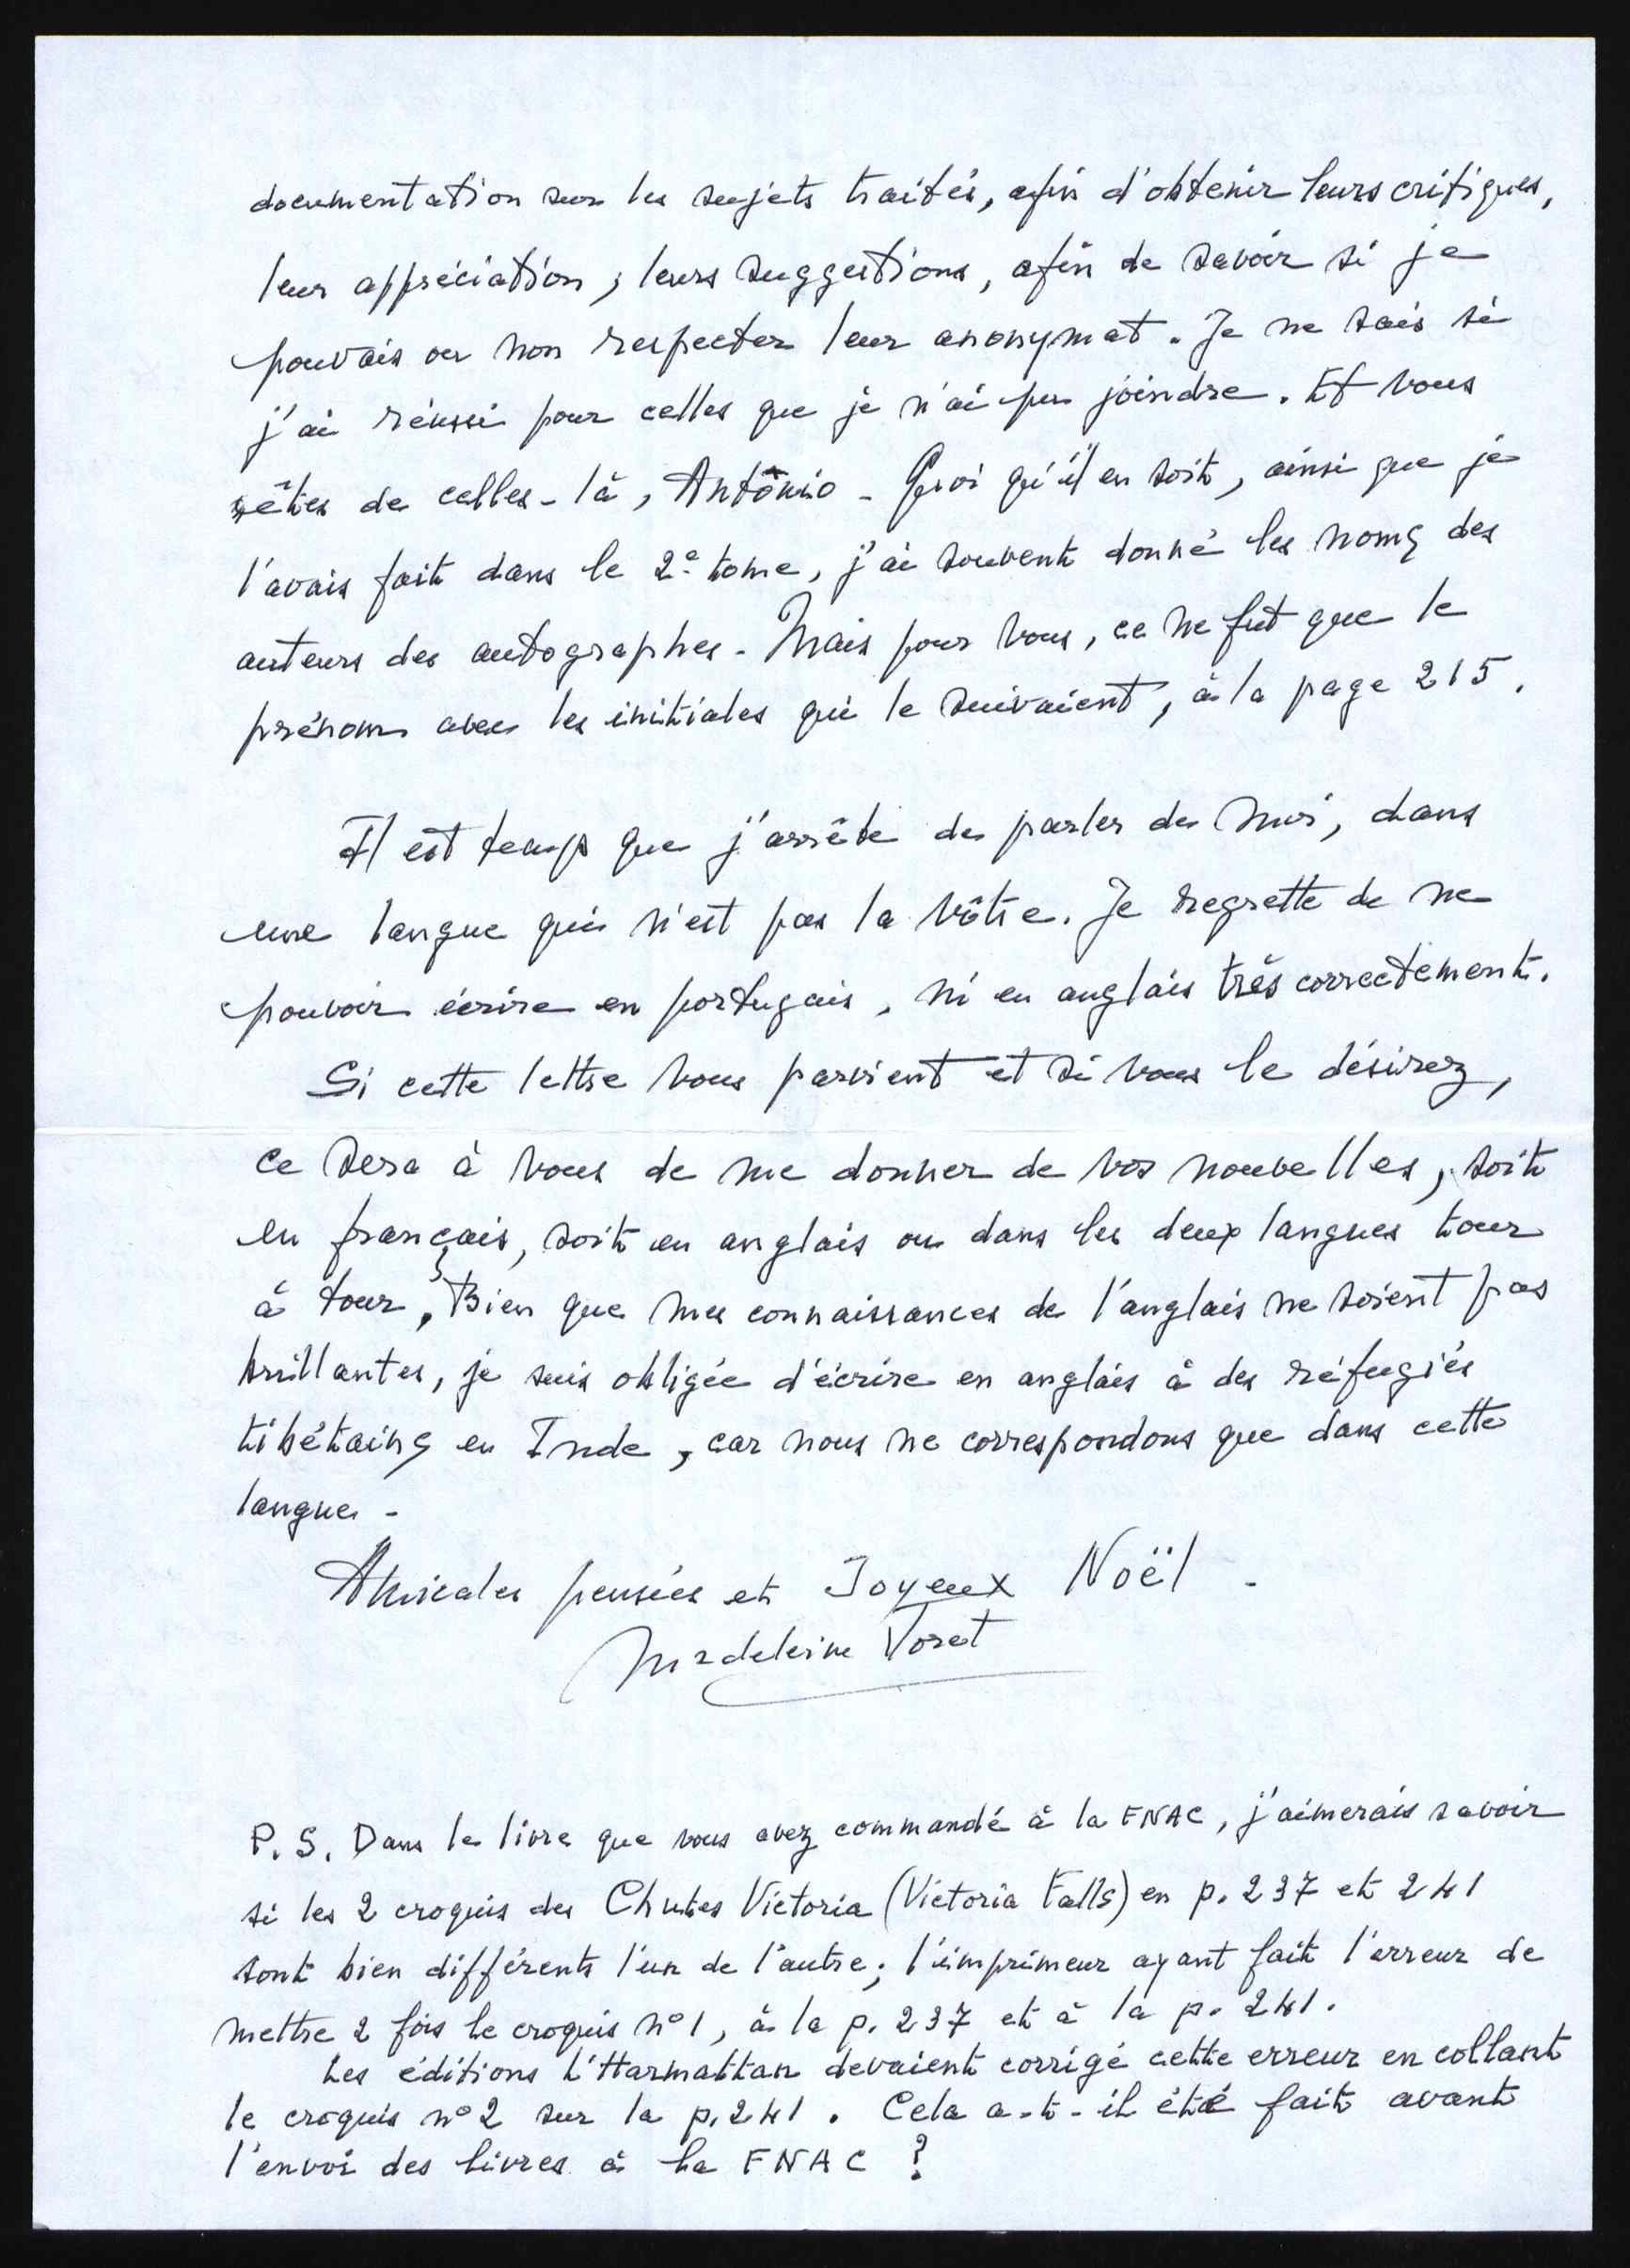 documentation sur les sujets traités, afin d'obtenir leurs critiques,
leur appréciation, leurs suggestions, afin de savoir si je
pouvais ou non respecter leur anonymat. Je ne sais si
j'ai réussi pour celles que je n'ai pu joindre. Et vous
êtes de celles-là, Antônio - Quoi qu'il en soit, ainsi que je
l'avais fait dans le 2e tome, j'ai souvent donné les noms des
auteurs des autographes - Mais pour vous, ce ne fut que le
prénom avec les initiales qui le suivaient, à la page 215.
Il est temps que j'arrête de parler de moi, dans
une langue qui n'est pas la vôtre. Je regrette de ne
pouvoir écrire en portugais, ni en anglais très correctement.
Si cette lettre vous parvient et si vous le désirez,
ce sera à vous de me donner de vos nouvelles, soit
en français, soit en anglais ou dans les deux langues tour
à tour, Bien que mes connaissances de l'anglais ne soient pas
brillantes, je suis obligée d'écrire en anglais à des réfugiés
tibétains en Inde, car nous ne correspondons que dans cette
langue -
Amicales pensées et Joyeux Noël -
Madeleine Toret
P.S. Dans le livre que vous avez commandé à la FNAC, j'aimerais savoir
si les 2 croquis des Chutes Victoria (Victoria Falls) en p. 237 et 241
sont bien différents l'un de l'autre; l'imprimeur ayant fait l'erreur de
mettre 2 fois le croquis n°1, à la p. 237 et à la p. 241.
Les éditions L'Harmattan devaient corrigé cette erreur en collant
le croquis n°2 sur la p. 241. Cela a-t-il été fait avant
l'envoi des livres à la FNAC ?